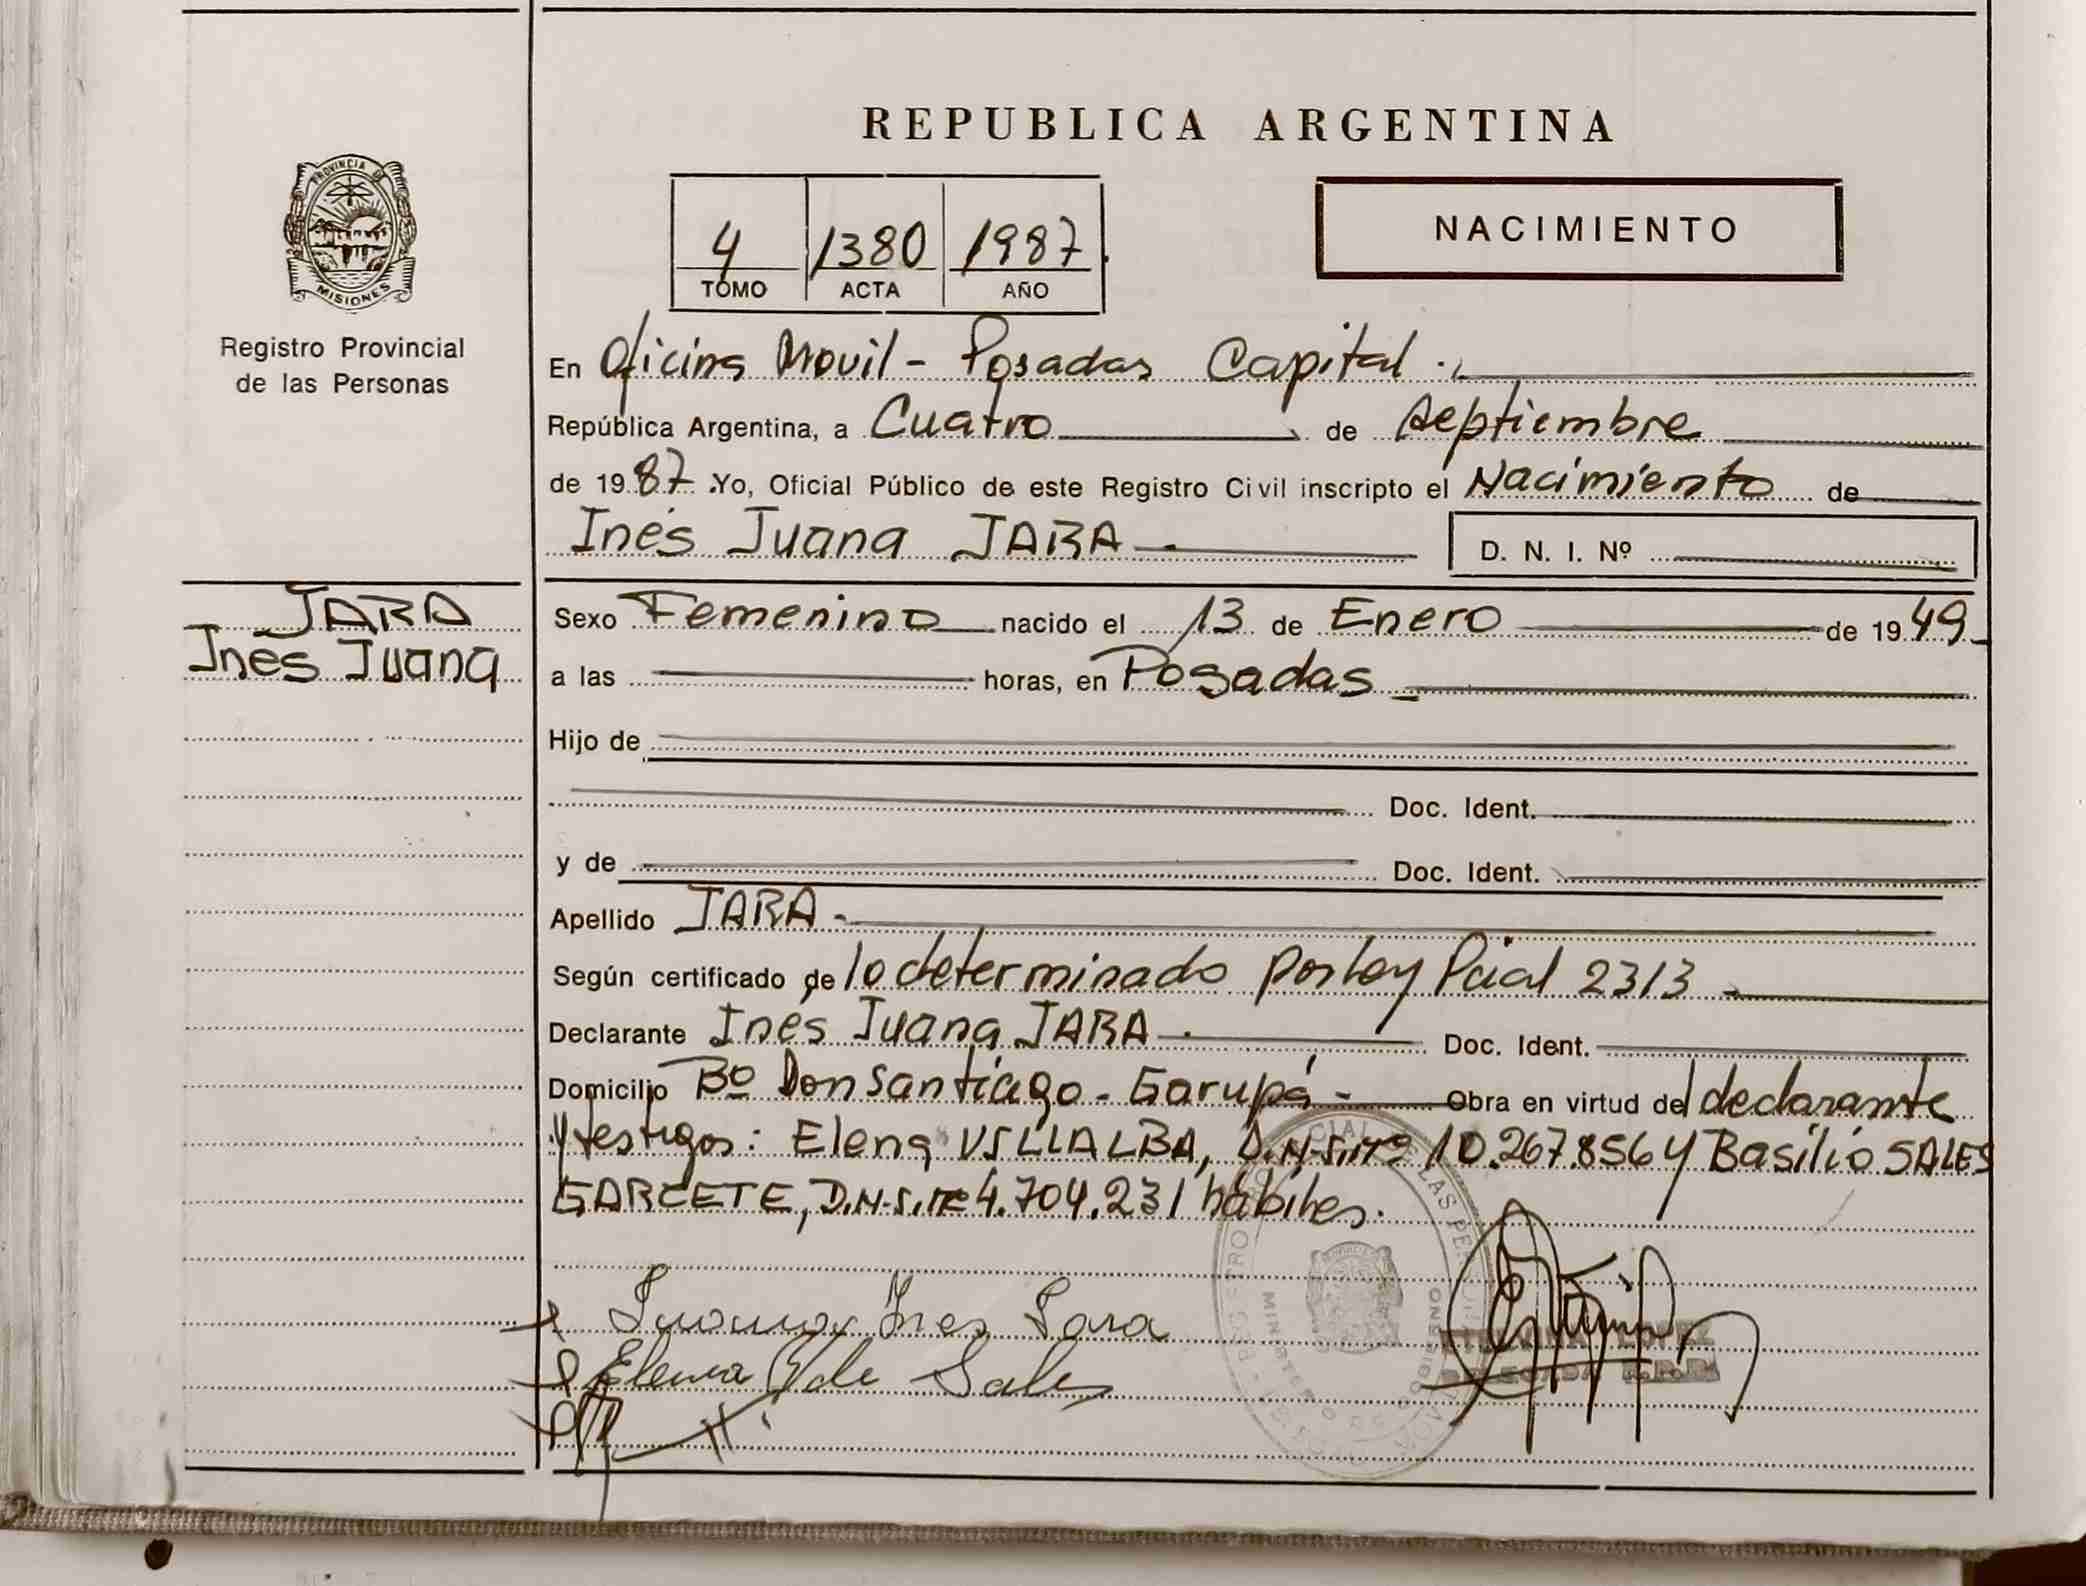 REPUBLICA ARGENTINA
PROVINCIA DE
MISIONES
Registro Provincial
de las Personas
4 1380 1987
TOMO ACTA AÑO
NACIMIENTO
En Oficina Movil - Posadas Capital.
República Argentina, a Cuatro de septiembre
de 1987. Yo, Oficial Público de este Registro Civil inscripto el Nacimiento de
Inés Juana JARA D. N. I. Nº
JARA
Ines Juana
Sexo Femenino nacido el 13 de Enero de 1949
a las horas, en Posadas
Hijo de
Doc. Ident.
y de Doc. Ident.
Apellido JARA-
Según certificado de lo determinado por ley Pcial 2313
Declarante Inés Juana JARA Doc. Ident.
Domicilio Bº Don Santiago - Garupá - Obra en virtud del declarante
y testigos: Elena VILLALBA, D.N.I. Nº 10.267.856 y Basilio SALES
GARCETE, D.N.I. Nº 4.704.231 hábiles.
Juana Ines Jara
Elena V de Sales